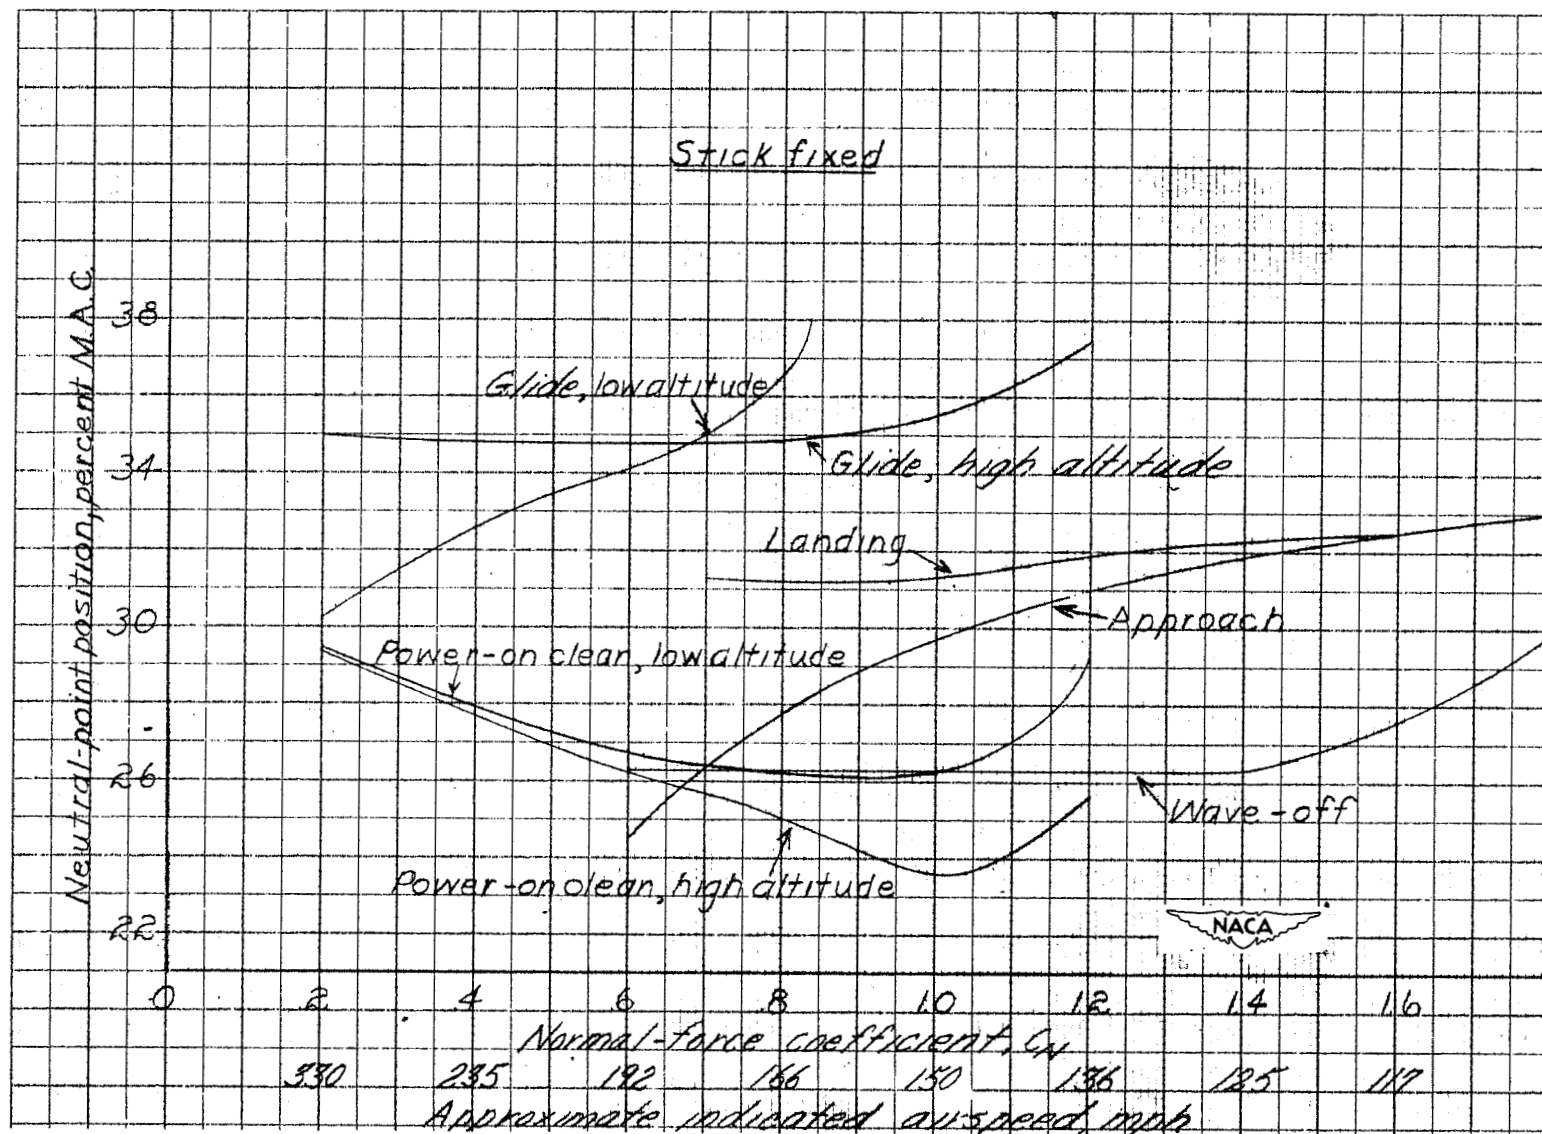 Stick fixed
Neutral-point position, percent M.A.C.
38
Glide, low altitude
34
Glide, high altitude
Landing
30
Approach
Power-on clean, low altitude
26
Wave-off
Power-on clean, high altitude
22
NACA
0 .2 .4 .6 .8 1.0 1.2 1.4 1.6
Normal-force coefficient, CN
330 235 192 166 150 136 125 117
Approximate indicated airspeed, mph